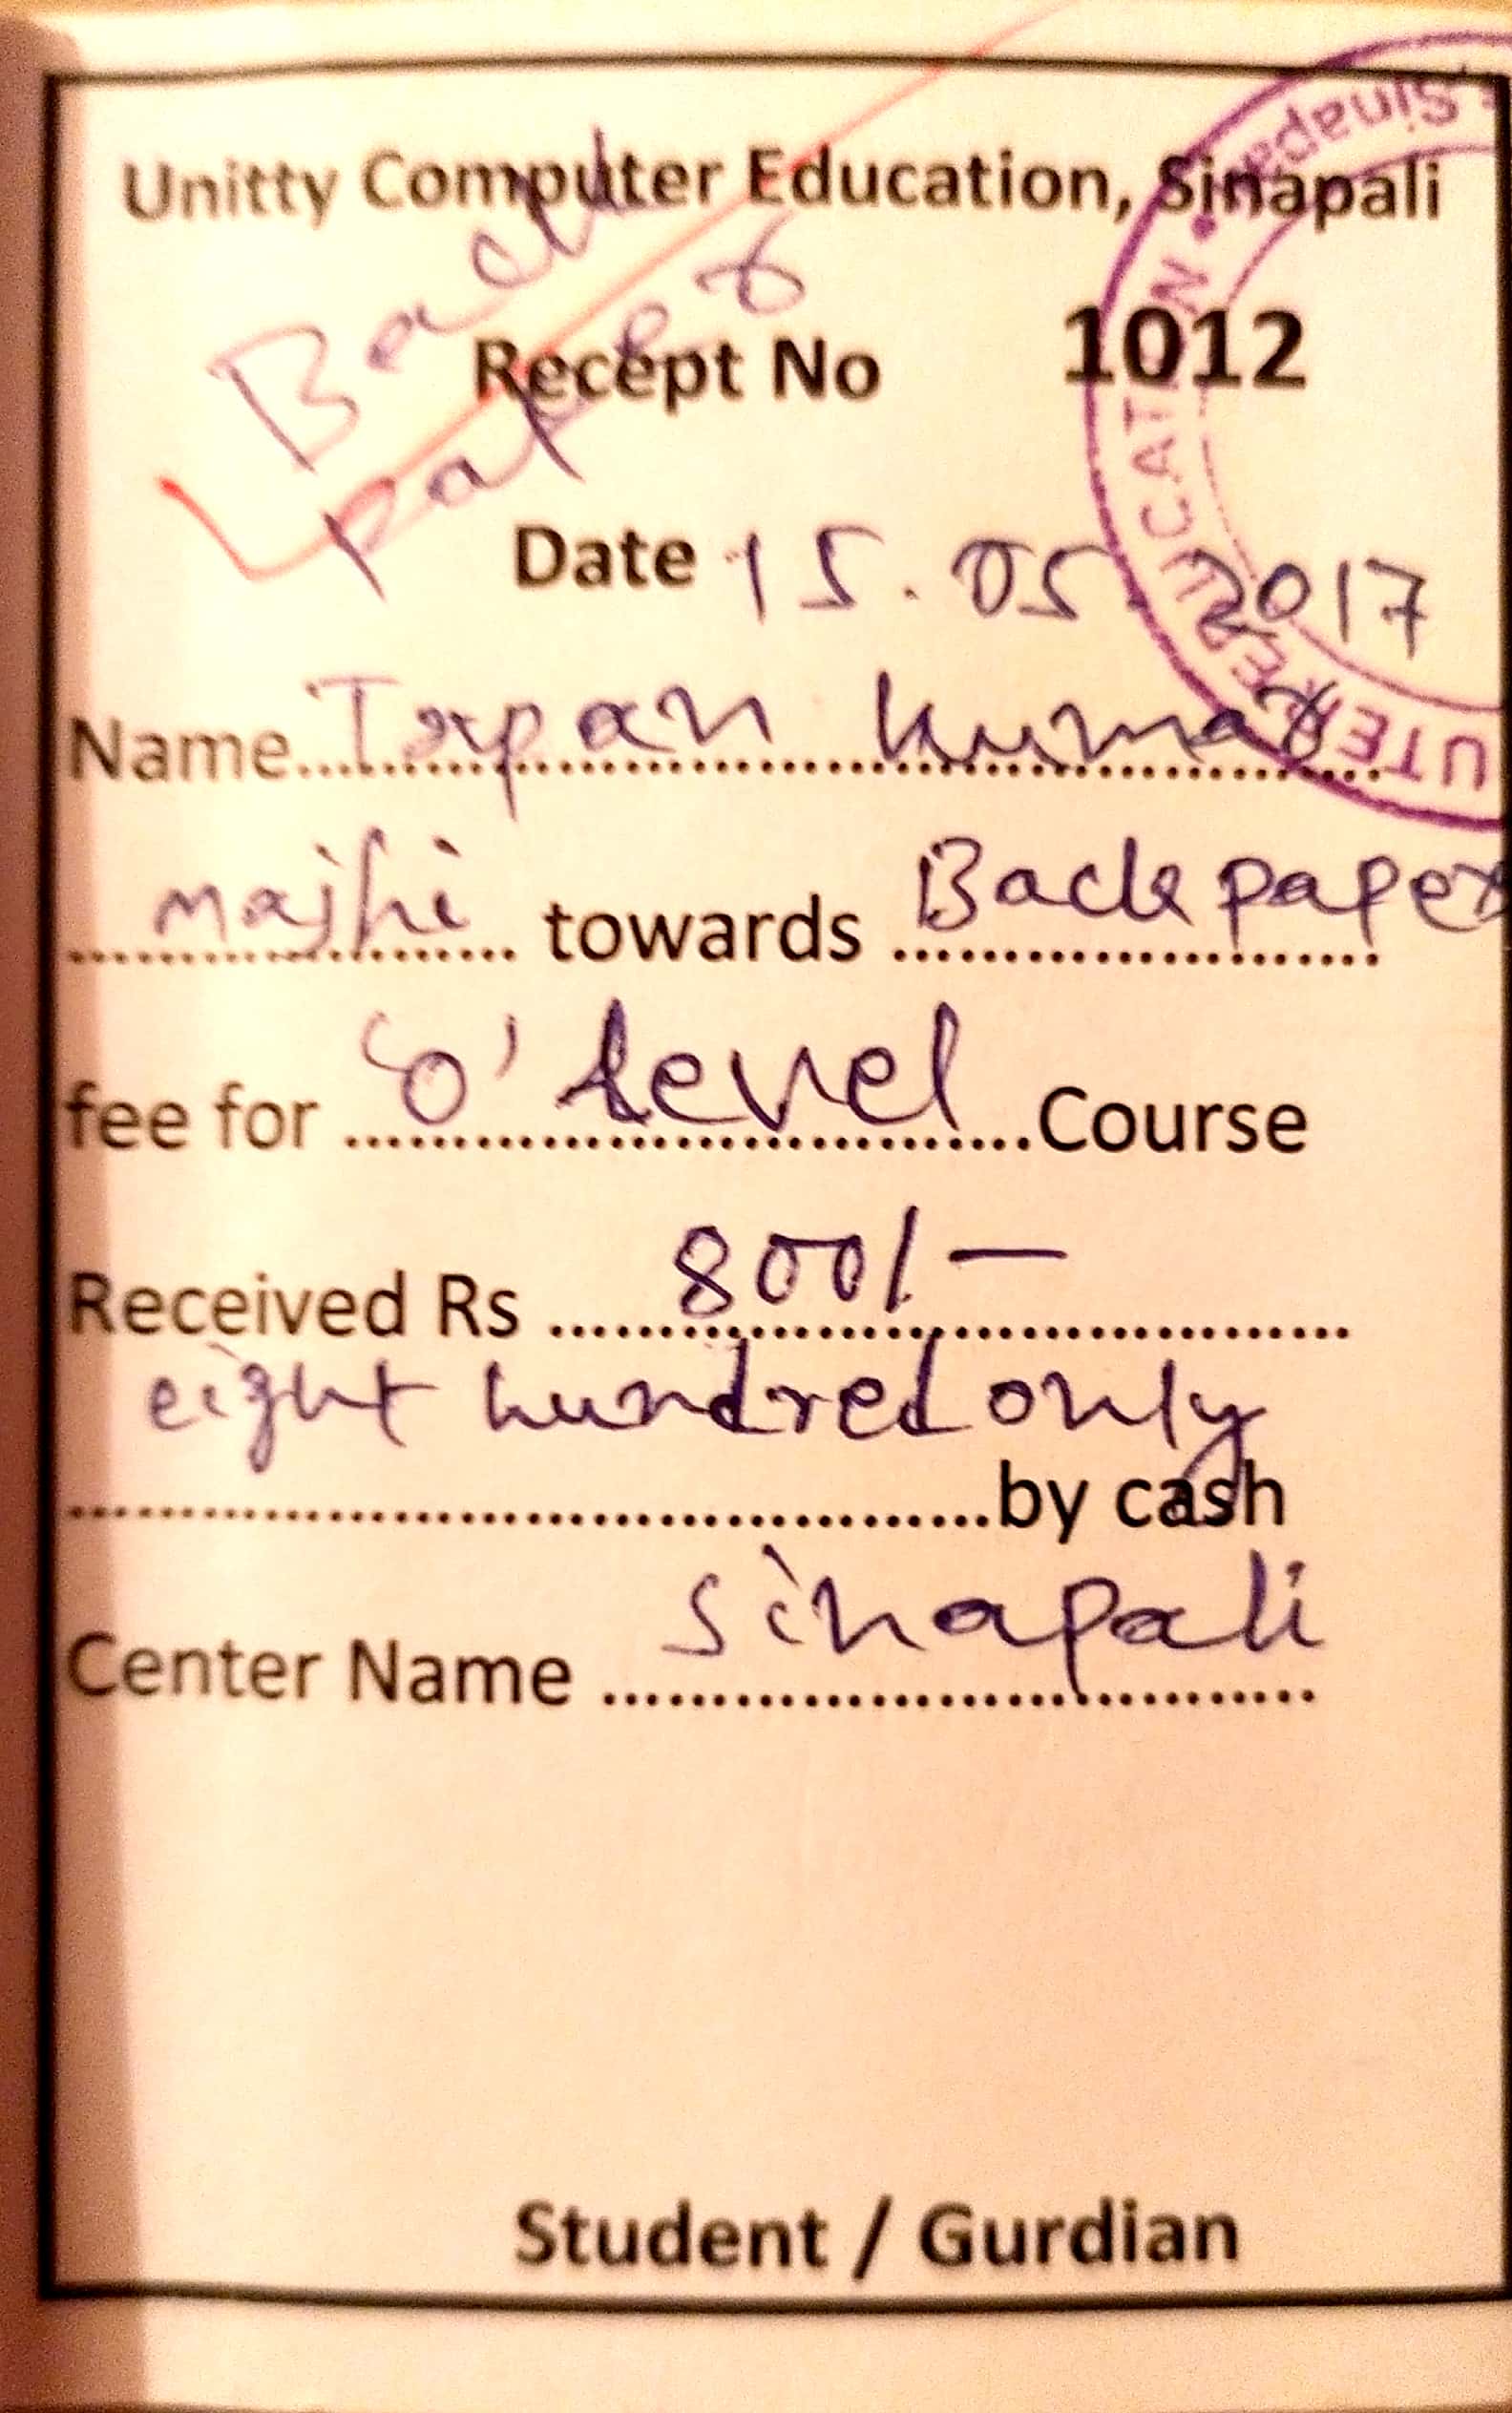 Unitty Computer Education, Sinapali
Back
paper
Recept No 1012
Date 15.05.2017
Name Tapan kumar
majhi towards Back paper
fee for 'O' level Course
Received Rs 800/-
eight hundred only
by cash
Center Name Sinapali
Student / Gurdian